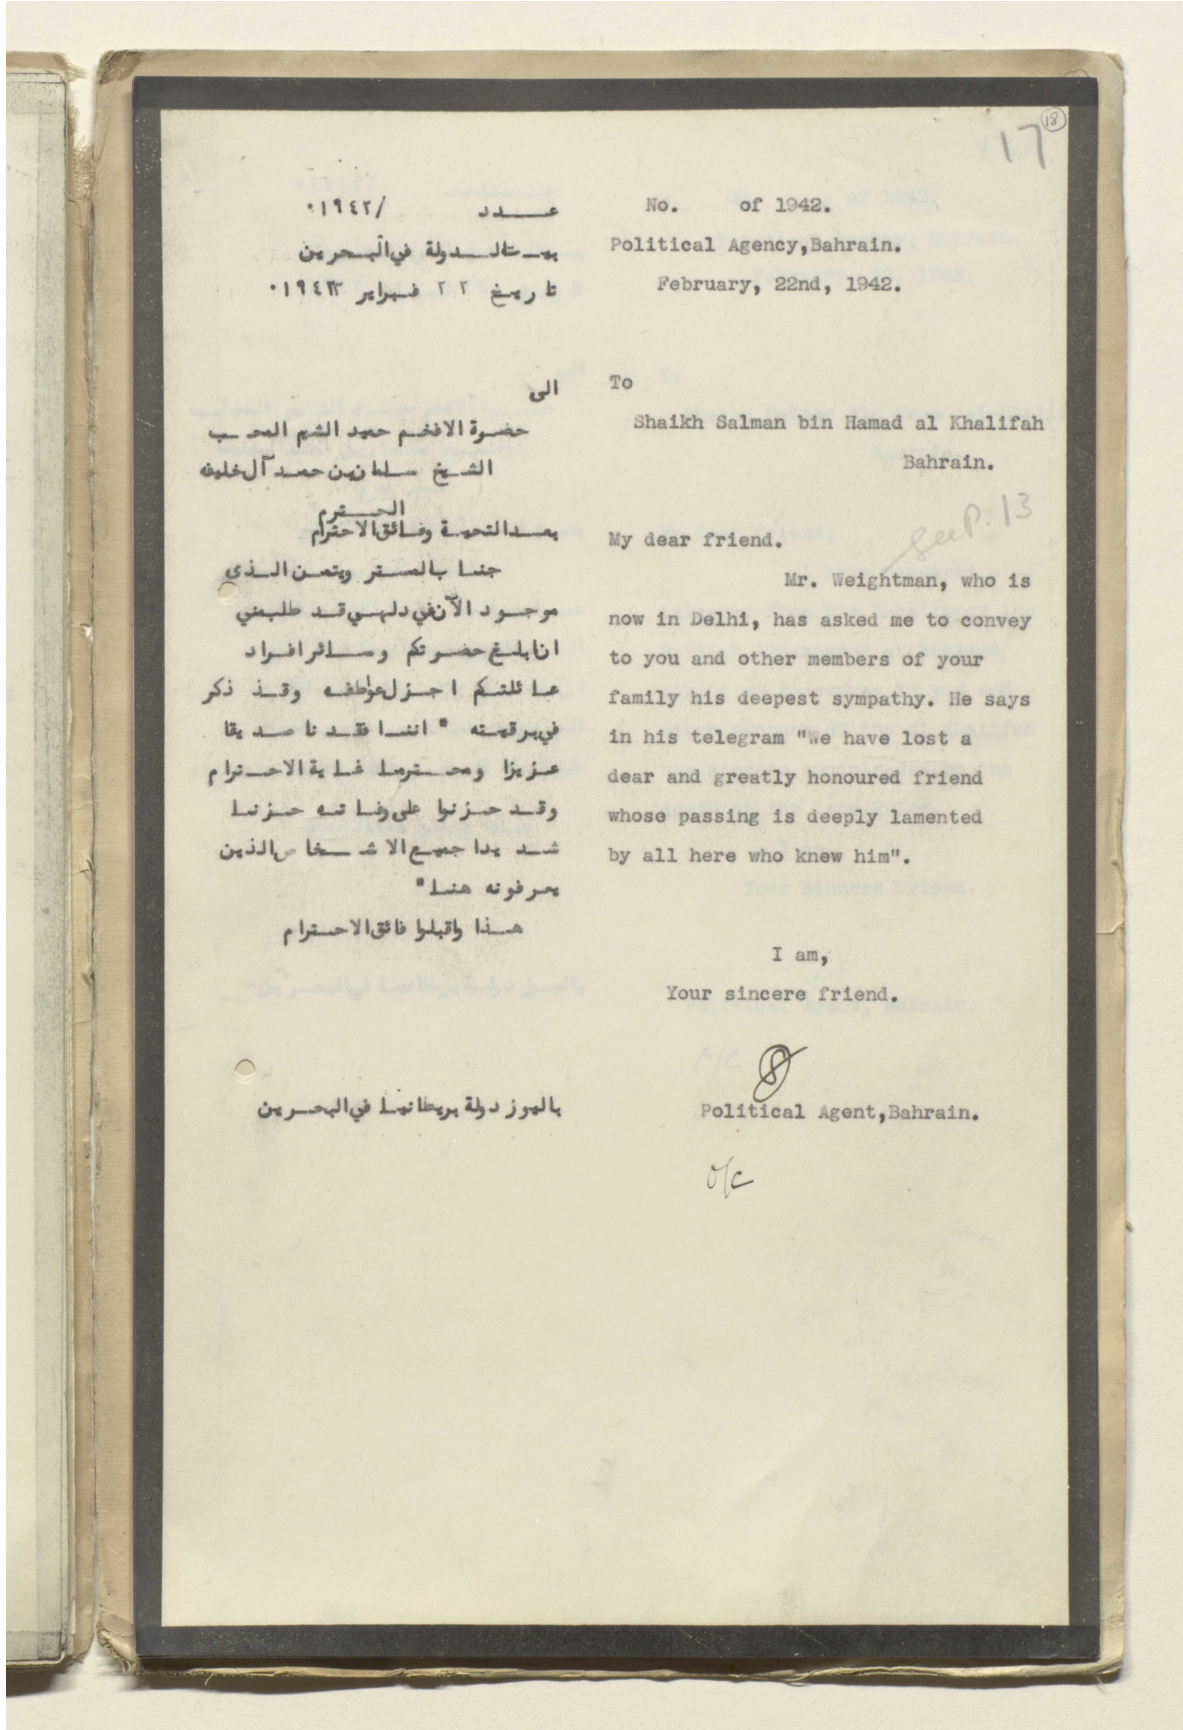 17
18
عدد /١٩٤٢٠
بيت الدولة في البحرين
تاريخ ٢٢ فبراير ١٩٤٢٠
الى
حضرة الافخم حميد الشيم المحب
الشيخ سلمان بن حمد آل خليفه
المحترم
بعد التحية وفائق الاحترام
جناب المستر ويتمن الذي
موجود الآن في دلهي قد طلب مني
ان ابلغ حضرتكم وسائر افراد
عائلتكم اجزل عواطفه وقد ذكر
في برقيته " اننا فقدنا صديقا
عزيزا ومحترما غاية الاحترام
وقد حزنوا على وفاته حزنا
شديدا جميع الاشخاص الذين
يعرفونه هنا"
هذا واقبلوا فائق الاحترام
باليوز دولة بريطانيا في البحرين
No. of 1942.
Political Agency,Bahrain.
February, 22nd, 1942.
To
Shaikh Salman bin Hamad al Khalifah
Bahrain.
see P. 13
My dear friend.
Mr. Weightman, who is
now in Delhi, has asked me to convey
to you and other members of your
family his deepest sympathy. He says
in his telegram "We have lost a
dear and greatly honoured friend
whose passing is deeply lamented
by all here who knew him".
I am,
Your sincere friend.
Political Agent,Bahrain.
o/c